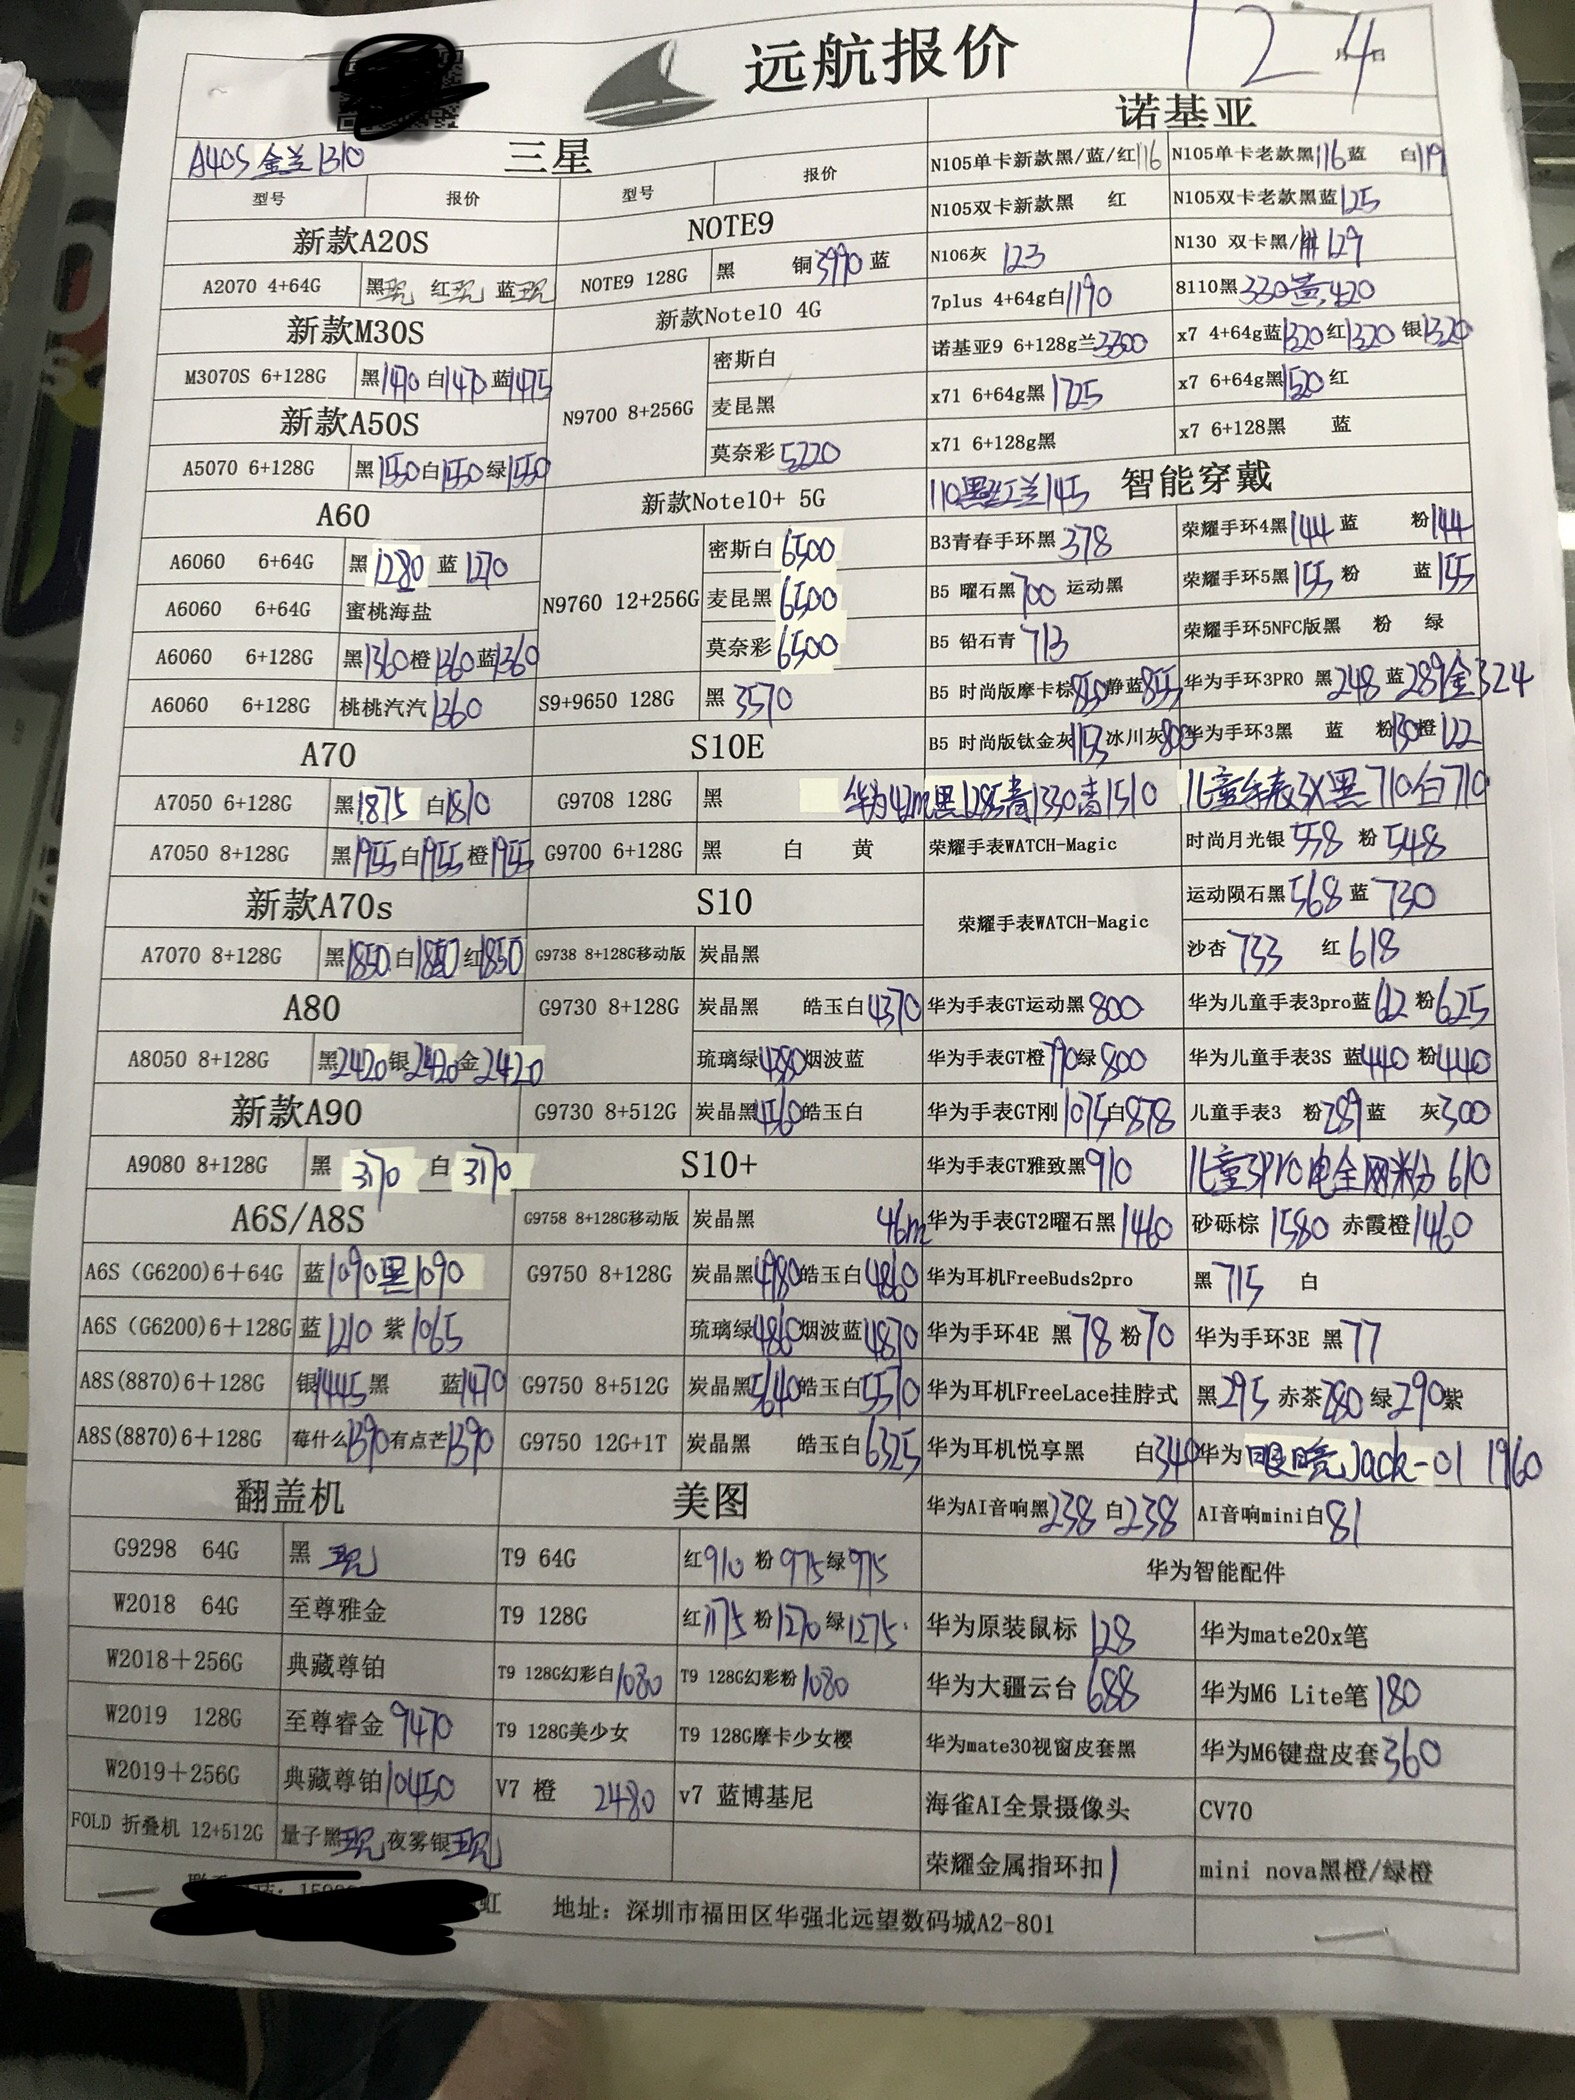 远航报价
12月4日
A40S 金兰1310
三星
型号 报价 型号 报价
新款A20S
A2070 4+64G 黑现 红现 蓝现
新款M30S
M3070S 6+128G 黑1470 白1470 蓝1475
新款A50S
A5070 6+128G 黑1550 白1550 绿1550
A60
A6060 6+64G 黑1280 蓝1270
A6060 6+64G 蜜桃海盐
A6060 6+128G 黑1360 橙1360 蓝1360
A6060 6+128G 桃桃汽汽 1360
A70
A7050 6+128G 黑1875 白1810
A7050 8+128G 黑1955 白1955 橙1955
新款A70s
A7070 8+128G 黑1850 白1850 红1850
A80
A8050 8+128G 黑2420 银2420 金2420
新款A90
A9080 8+128G 黑 3170 白 3170
A6S/A8S
A6S（G6200)6+64G 蓝1090 黑1090
A6S（G6200)6+128G 蓝1210 紫1065
A8S(8870)6+128G 银1445 黑 蓝1470
A8S(8870)6+128G 莓什么1390 有点芒1390
翻盖机
G9298 64G 黑 现
W2018 64G 至尊雅金
W2018+256G 典藏尊铂
W2019 128G 至尊睿金 9470
W2019+256G 典藏尊铂 10450
FOLD 折叠机 12+512G 量子黑现 夜雾银现
NOTE9
NOTE9 128G 黑 铜3990 蓝
新款Note10 4G
N9700 8+256G 密斯白
麦昆黑
莫奈彩 5220
新款Note10+ 5G
N9760 12+256G 密斯白 6500
麦昆黑 6500
莫奈彩 6500
S9+9650 128G 黑 3570
S10E
G9708 128G 黑
G9700 6+128G 黑 白 黄
S10
G9738 8+128G移动版 炭晶黑
G9730 8+128G 炭晶黑 皓玉白4370
琉璃绿4380 烟波蓝
G9730 8+512G 炭晶黑4560 皓玉白
S10+
G9758 8+128G移动版 炭晶黑
G9750 8+128G 炭晶黑4980 皓玉白4860
琉璃绿4860 烟波蓝4870
G9750 8+512G 炭晶黑5640 皓玉白5570
G9750 12G+1T 炭晶黑 皓玉白6325
美图
T9 64G 红910 粉975 绿975
T9 128G 红1175 粉1270 绿1275
T9 128G幻彩白1080 T9 128G幻彩粉1080
T9 128G美少女 T9 128G摩卡少女樱
V7 橙 2480 v7 蓝博基尼
诺基亚
N105单卡新款黑/蓝/红116 N105单卡老款黑116蓝 白119
N105双卡新款黑 红 N105双卡老款黑蓝125
N106灰 123 N130 双卡黑/ 129
7plus 4+64g白1190 8110黑330黄420
诺基亚9 6+128g兰3300 x7 4+64g蓝1320 红1320 银1320
x71 6+64g黑 1725 x7 6+64g黑1520 红
x71 6+128g黑 x7 6+128黑 蓝
110黑红兰145 智能穿戴
B3青春手环黑 378 荣耀手环4黑144 蓝 粉144
B5 曜石黑 700 运动黑 荣耀手环5黑155 粉 蓝155
B5 铅石青 713 荣耀手环5NFC版黑 粉 绿
B5 时尚版摩卡棕850 静蓝855 华为手环3PRO 黑248 蓝289金324
B5 时尚版钛金灰1153 冰川灰800 华为手环3黑 蓝 粉130橙122
华为42m黑1285青1330 1510 儿童手表3X黑710白710
荣耀手表WATCH-Magic 时尚月光银558 粉548
荣耀手表WATCH-Magic 运动陨石黑568 蓝730
沙杏733 红618
华为手表GT运动黑 800 华为儿童手表3pro蓝612 粉625
华为手表GT橙790 绿800 华为儿童手表3S 蓝440 粉440
华为手表GT刚1075白878 儿童手表3 粉289 蓝 灰300
华为手表GT雅致黑910 儿童3Pro电全网粉 610
46m 华为手表GT2曜石黑1460 砂砾棕 1580 赤霞橙1460
华为耳机FreeBuds2pro 黑 715 白
华为手环4E 黑78 粉70 华为手环3E 黑77
华为耳机FreeLace挂脖式 黑295 赤茶280 绿290紫
华为耳机悦享黑 白340 华为 眼镜Jack-01 1960
华为AI音响黑238 白238 AI音响mini白81
华为智能配件
华为原装鼠标 128 华为mate20x笔
华为大疆云台 688 华为M6 Lite笔 180
华为mate30视窗皮套黑 华为M6键盘皮套360
海雀AI全景摄像头 CV70
荣耀金属指环扣 1 mini nova黑橙/绿橙
虹 地址：深圳市福田区华强北远望数码城A2-801